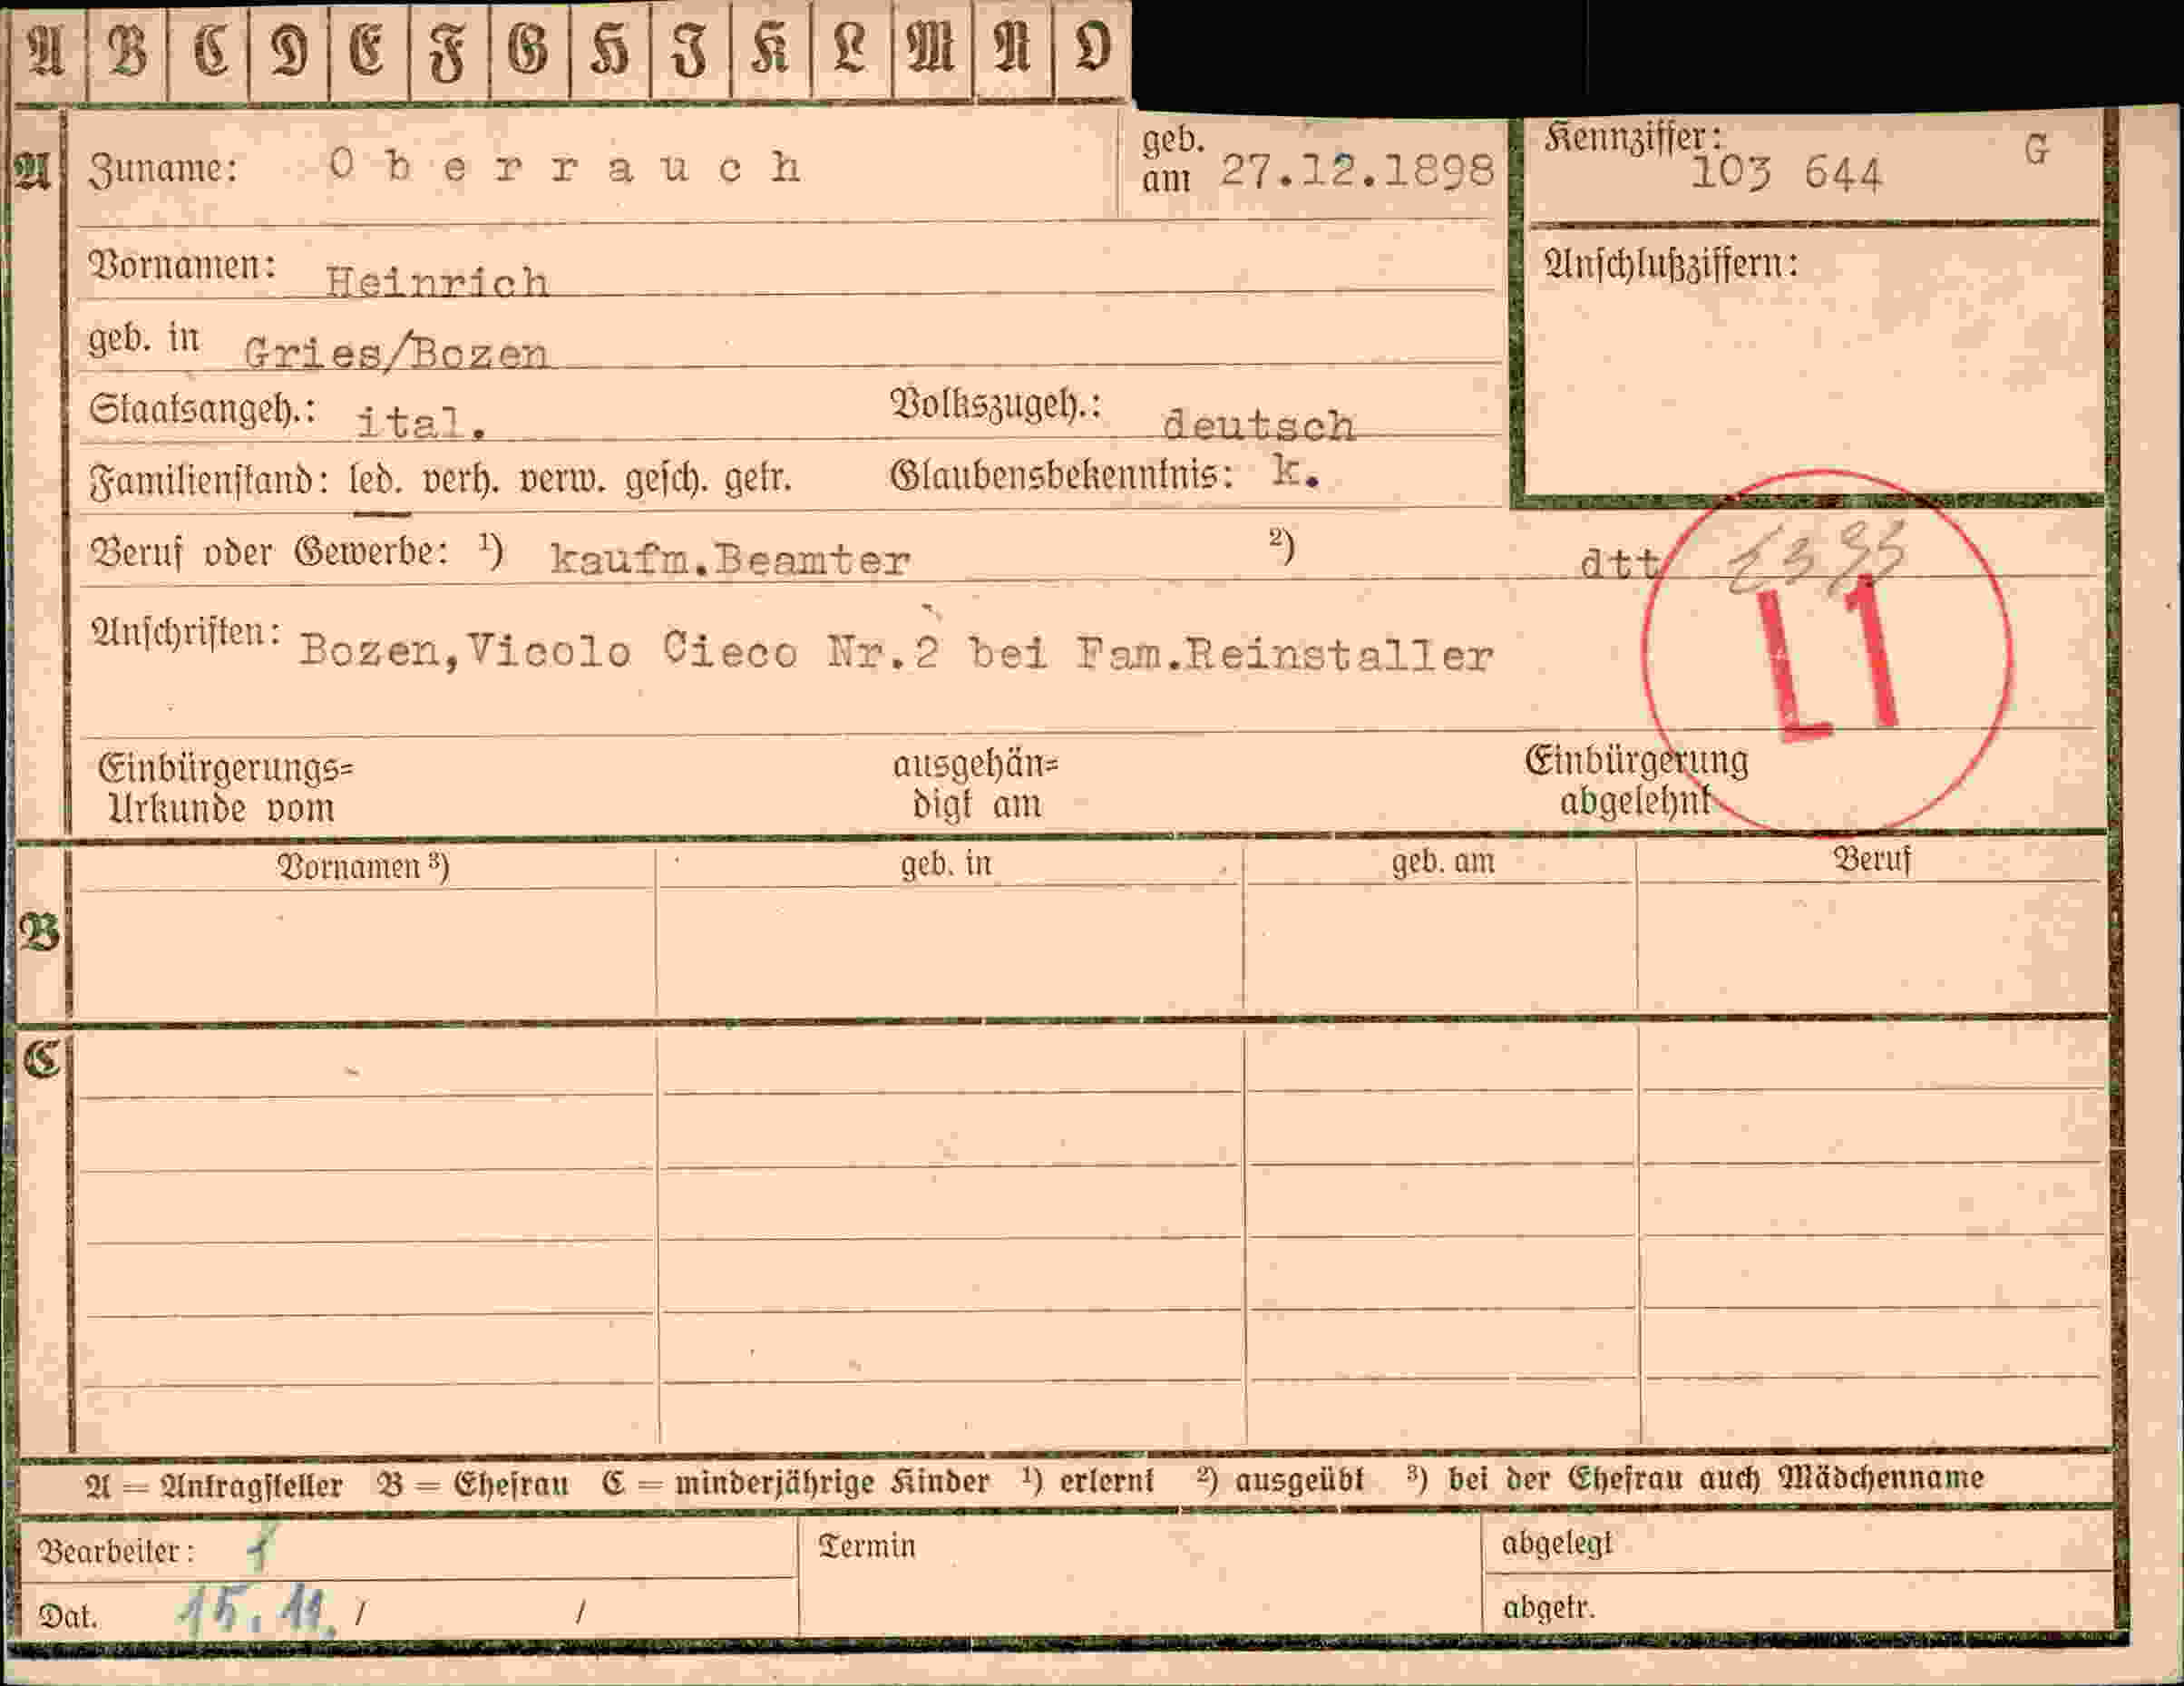 A B C D E F G H J K L M N O
A Zuname: Oberrauch geb. am 27.12.1898 Kennziffer: 103 644 G
Vornamen: Heinrich Anschlußziffern:
geb. in Gries/Bozen
Staatsangeh.: ital. Volkszugeh.: deutsch
Familienstand: led. verh. verw. gesch. getr. Glaubensbekenntnis: k.
Beruf oder Gewerbe: ¹) kaufm.Beamter ²) dtt
L 1
Anschriften: Bozen,Vicolo Cieco Nr.2 bei Fam.Reinstaller
Einbürgerungs= ausgehän= Einbürgerung
Urkunde vom digt am abgelehnt
Vornamen ³) geb. in geb. am Beruf
B
C
A = Antragsteller B = Ehefrau C = minderjährige Kinder ¹) erlernt ²) ausgeübt ³) bei der Ehefrau auch Mädchenname
Bearbeiter: Termin abgelegt
Dat. 15.11. / / abgetr.